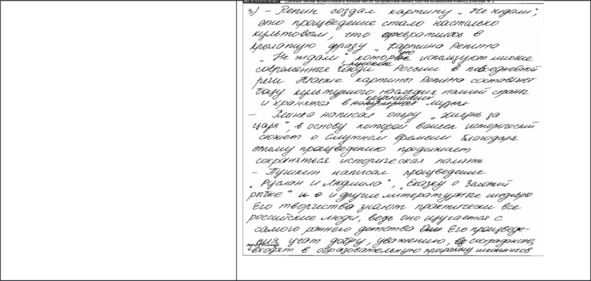 3) - Репин создал картину „Не ждали";
это произведение стало настолько
культовым, что превратилось в
крылатую фразу „Картина Репина
„Не ждали", которую используют многие
современные люди России в повседневной
речи Также картины Репина составляют
базу культурного наследия нашей страны
и хранятся в крупнейших музеях
- Глинка написал оперу „Жизнь за
царя", в основу которой вошел исторический
сюжет о Смутном времени Благодаря
этому произведению продолжает
сохраняться историческая память
- Пушкин написал произведение
„Руслан и Людмила", „Сказку о Золотой
рыбке" и другие литературные шедевры
Его творчество знают практически все
российские люди, ведь оно изучается с
самого раннего детства Его произведе-
ния учат добру, уважению, состраданию,
входят в образовательную программу школьников